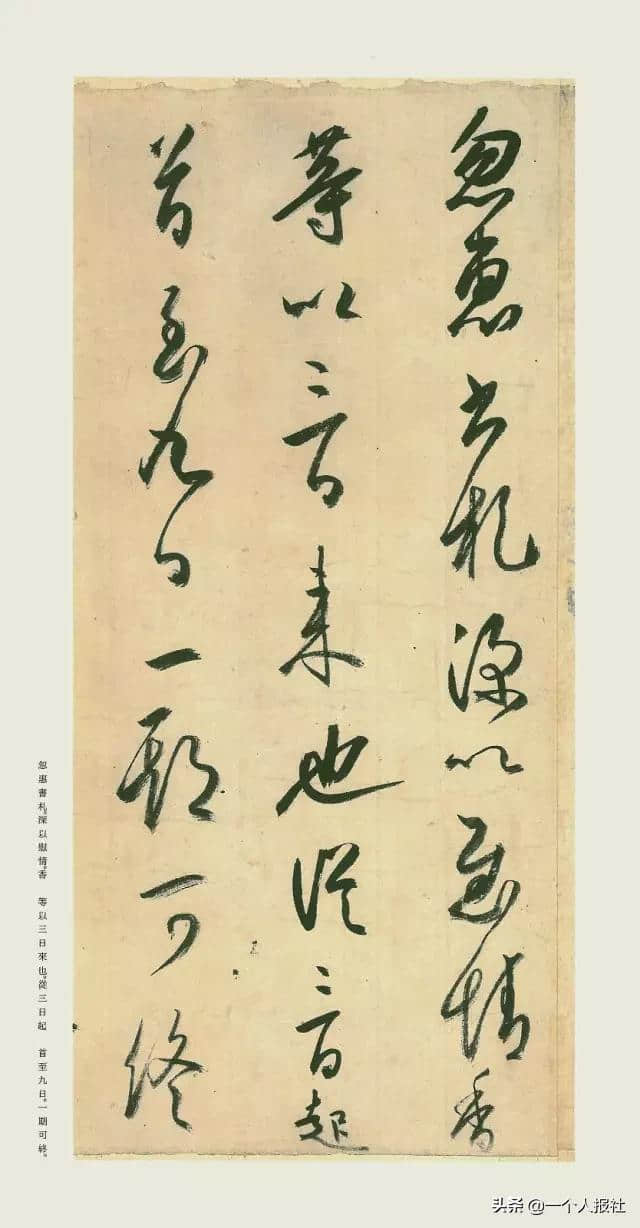 忽惠書札深以慰情香
等以三日來也從三日起
首至九日一期可終
忽惠書札。深以慰情。香　等以三日來也。從三日起　首至九日。一期可終。
头条 @一个人报社